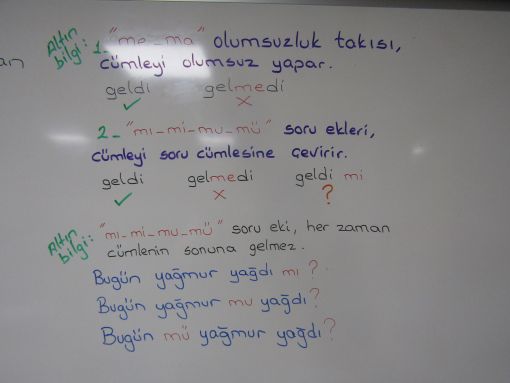 an
Altın bilgi:
1- "me - ma" olumsuzluk takısı,
cümleyi olumsuz yapar.
geldi gelmedi
2- "mı-mi-mu-mü" soru ekleri,
cümleyi soru cümlesine çevirir.
geldi gelmedi geldi mi
?
Altın bilgi:
"mı-mi-mu-mü" soru eki, her zaman
cümlenin sonuna gelmez.
Bugün yağmur yağdı mı ?
Bugün yağmur mu yağdı?
Bugün mü yağmur yağdı?